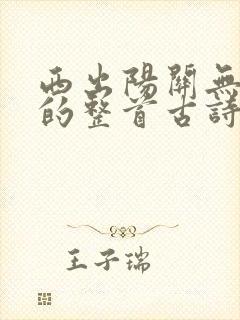 西出陽關無
的整首古詩
王子瑞